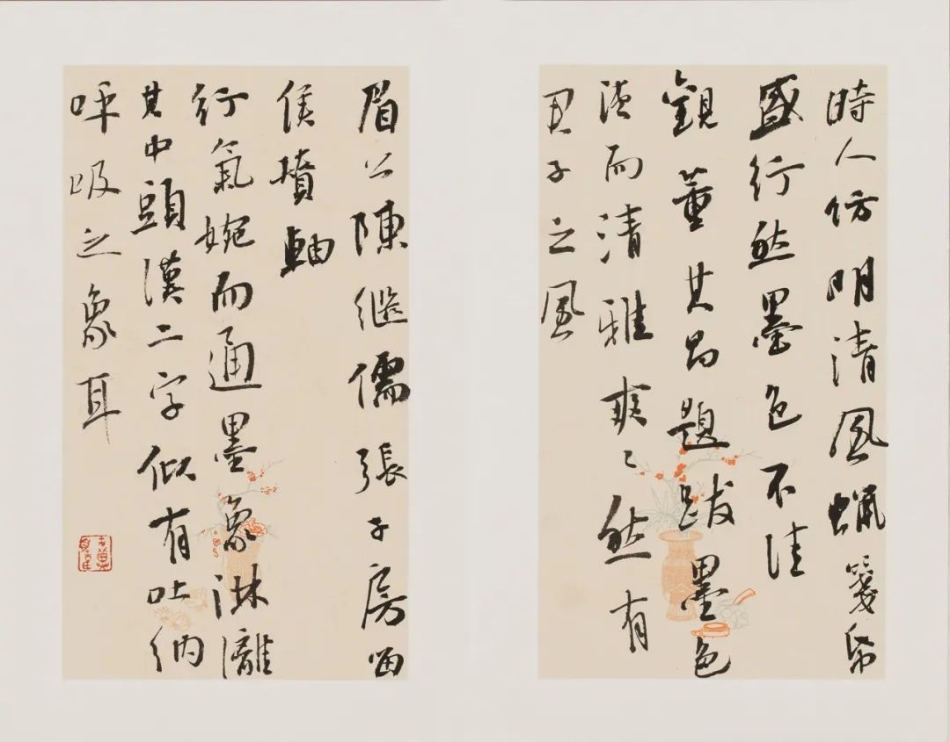 時人仿明清風蠟箋紙
盛行然墨色不佳
觀董其昌題跋墨色
淡而清雅爽々然有
君子之風
眉公陳繼儒張子房留
侯墳軸
行氣婉而通墨象淋漓
其中頭漢二字似有吐納
呼吸之象耳